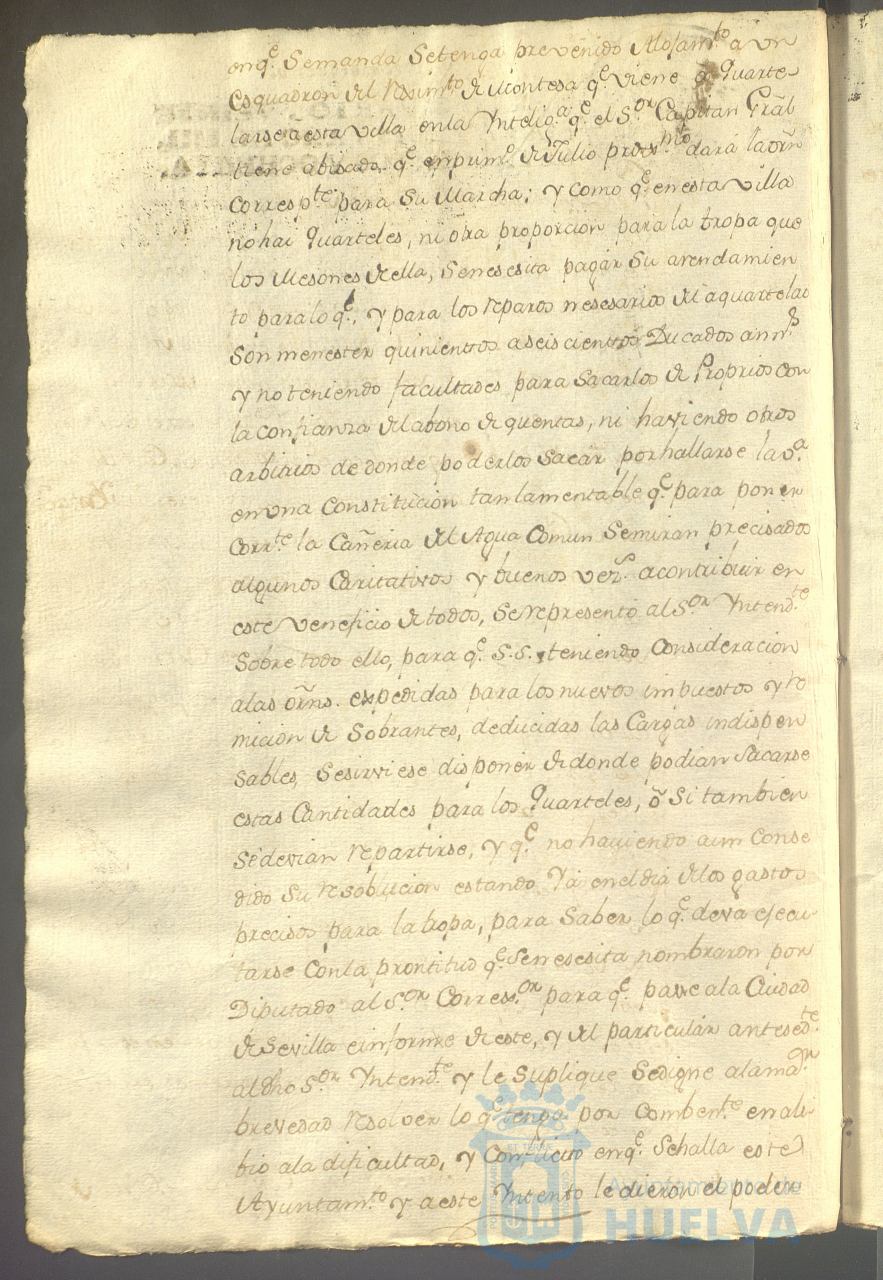 enq.e Semanda Setenga prevenido Alojam.to a un
Esquadron del Reximto de Montesa q.e viene a Quarte-
larse a esta villa en la Yntelig.a q.e el S.or Capitan Grãl
tiene abisado q.e en prim.o de Julio proxmo dará la orñ
Corresp.te para Su Marcha; y como q.e en esta villa
no hai Quarteles, ni otra proporcion para la tropa que
los Mesones de ella, se nesesita pagar Su arendamien
to para lo q.e, y para los reparos nesesarios del aquartelao
Son menester quinientos a seis cientos Ducados ann.s
y no teniendo facultades para Sacarlos de Proprios con
la confianza del abono de quentas, ni haviendo otros
arbitrios de donde poderlos Sacar por hallarse la v.a
en una Constitucion tan lamentable q.e para poner
Corr.te la Cañeria del Agua Comun Semiran precisados
algunos Caritativos y buenos vez.s a contribuir en
este veneficio de todos, Se representó al S.or Yntend.te
Sobre todo ello, para q.e S.S. teniendo Consideracion
a las orñs. expedidas para los nuevos impuestos y re
micion de Sobrantes, deducidas las Cargas indispen
sables, Sesirviese disponer de donde podian Sacarse
estas Cantidades para los Quarteles, ó Si tambien
Se devian repartirse, y q.e no haviendo aun Conse
dido Su resoblucion estando Ya en el dia de los gastos
precisos para la tropa, para Saber lo q.e deva ejecu-
tarse Con la prontitud q.e Se nesesita nombraron por
Diputado al S.or Corres.or para q.e passe a la Ciudad
de Sevilla e informe de este, y del particular antesed.te
al dho S.or Yntend.te y le Suplique Sedigne a la ma.or
brevedad resolver lo q.e tenga por Combent.e en ali-
bio a la dificultad, y Conflicto enq.e Sehalla este
Ayuntam.to y a este Yntento le dieron el poder
Ayuntamiento de
HUELVA